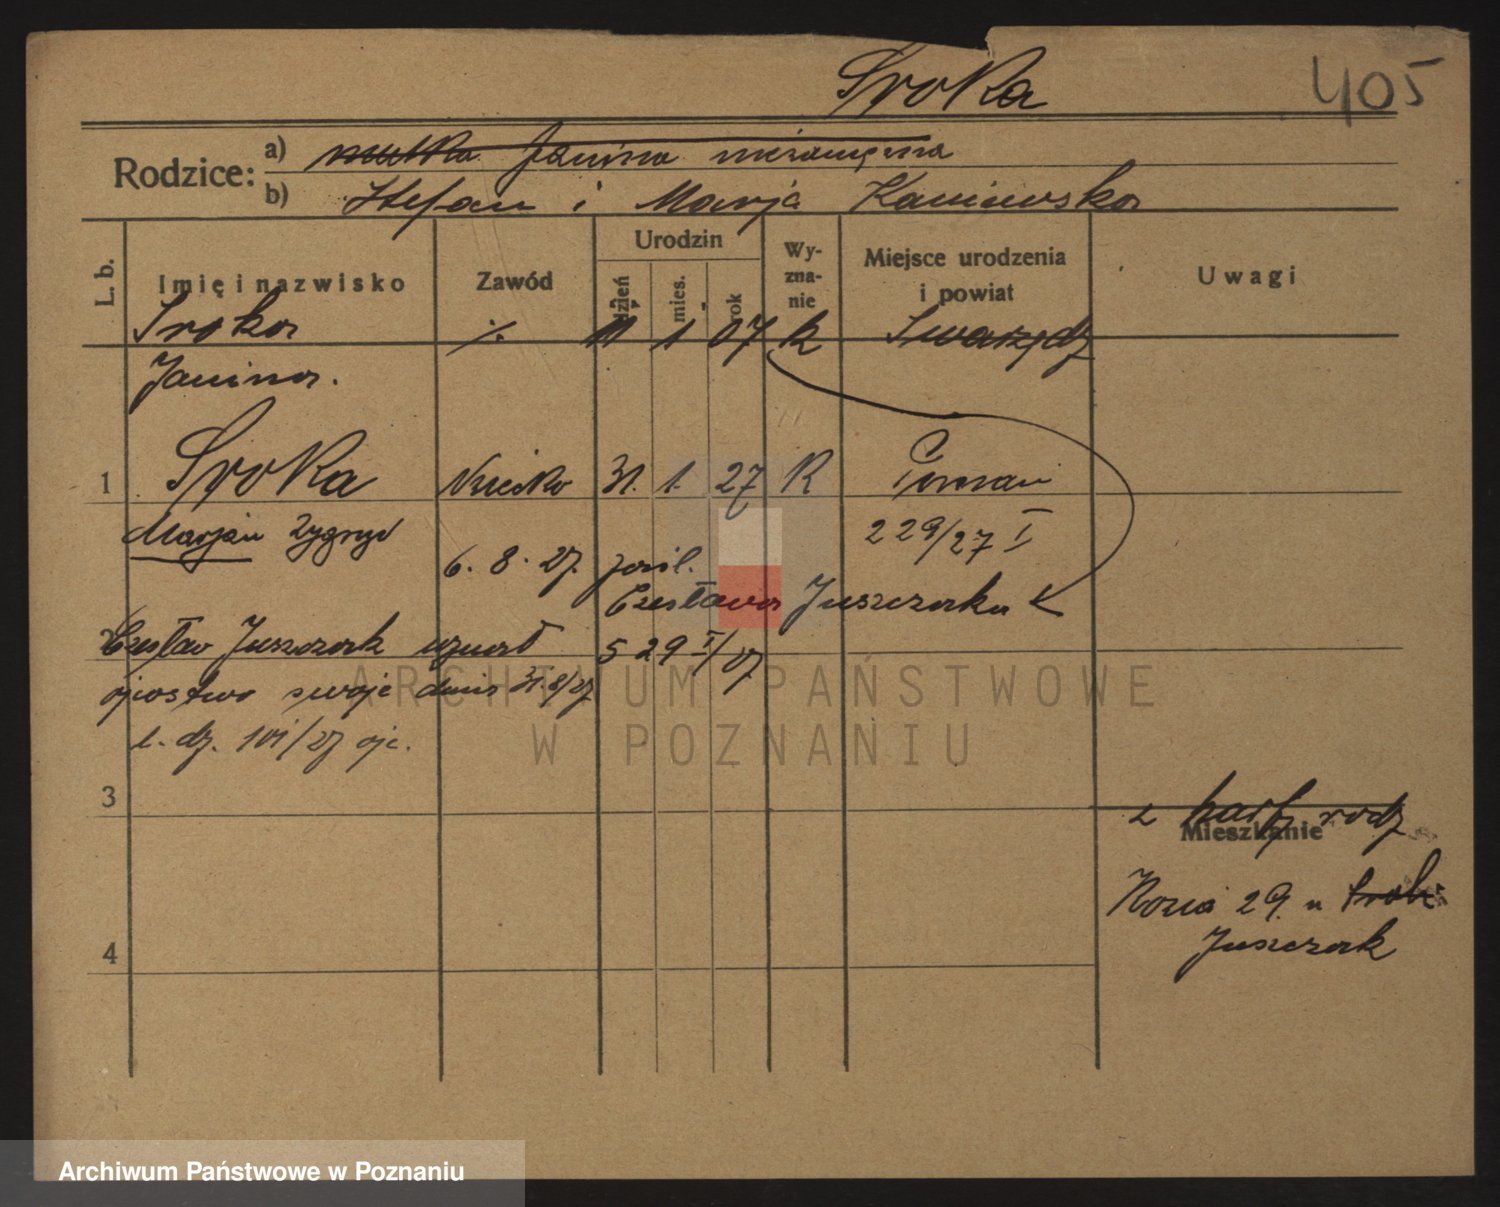 Sroka
405
Rodzice:
a) matka Janina niezamężna
b) Stefan i Marja Kaniewska
L. b.
Imię i nazwisko
Zawód
Urodzin
dzień
mies.
rok
Wy-
zna-
nie
Miejsce urodzenia
i powiat
Uwagi
Sroka ·/. 11 1 07 k Swarzędz
Janina.
1 Sroka 31. 1. 27 K Poznań
Marjan Zygryd
229/27 I
6. 8. 27. pośl.
Czesława Juszczaka
2
Czesław Juszczak uznał
5 29 I/27
ojcostwo swoje dnia 31.8/27
l. dz. 101/27 ojc.
3
z karty rodz
Mieszkanie
Kozia 29. u Sroki
Juszczak
4
ARCHIWUM PAŃSTWOWE
W POZNANIU
Archiwum Państwowe w Poznaniu